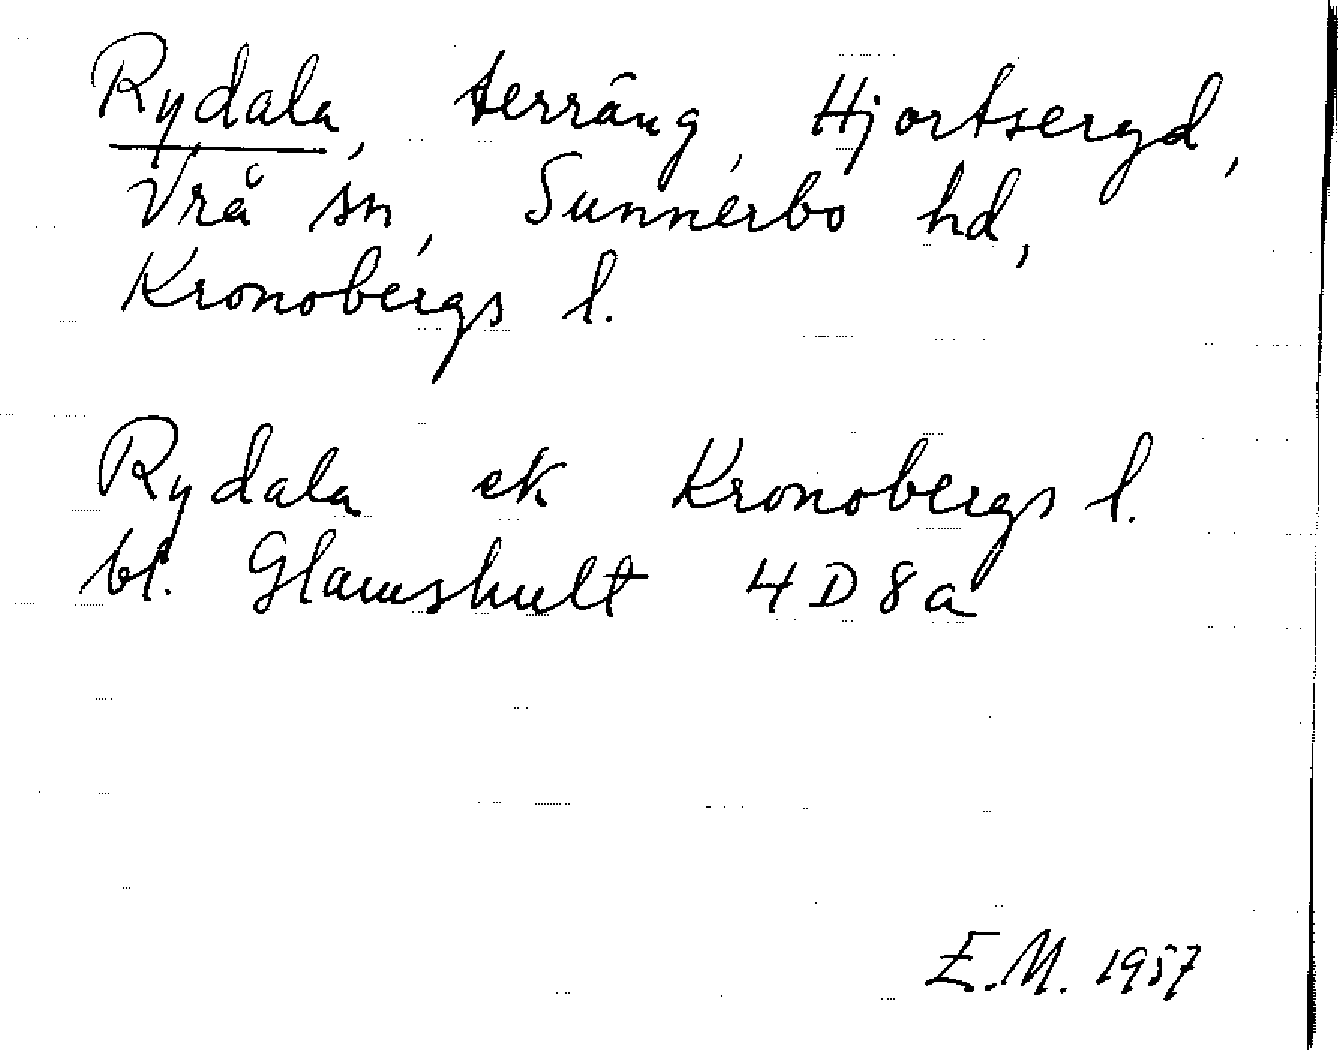 Rydala, terräng, Hjortseryd,
Vrå sn, Sunnerbo hd,
Kronobergs l.
Rydala ek Kronobergs l.
bl. Glamshult 4D8a
E.M. 1957